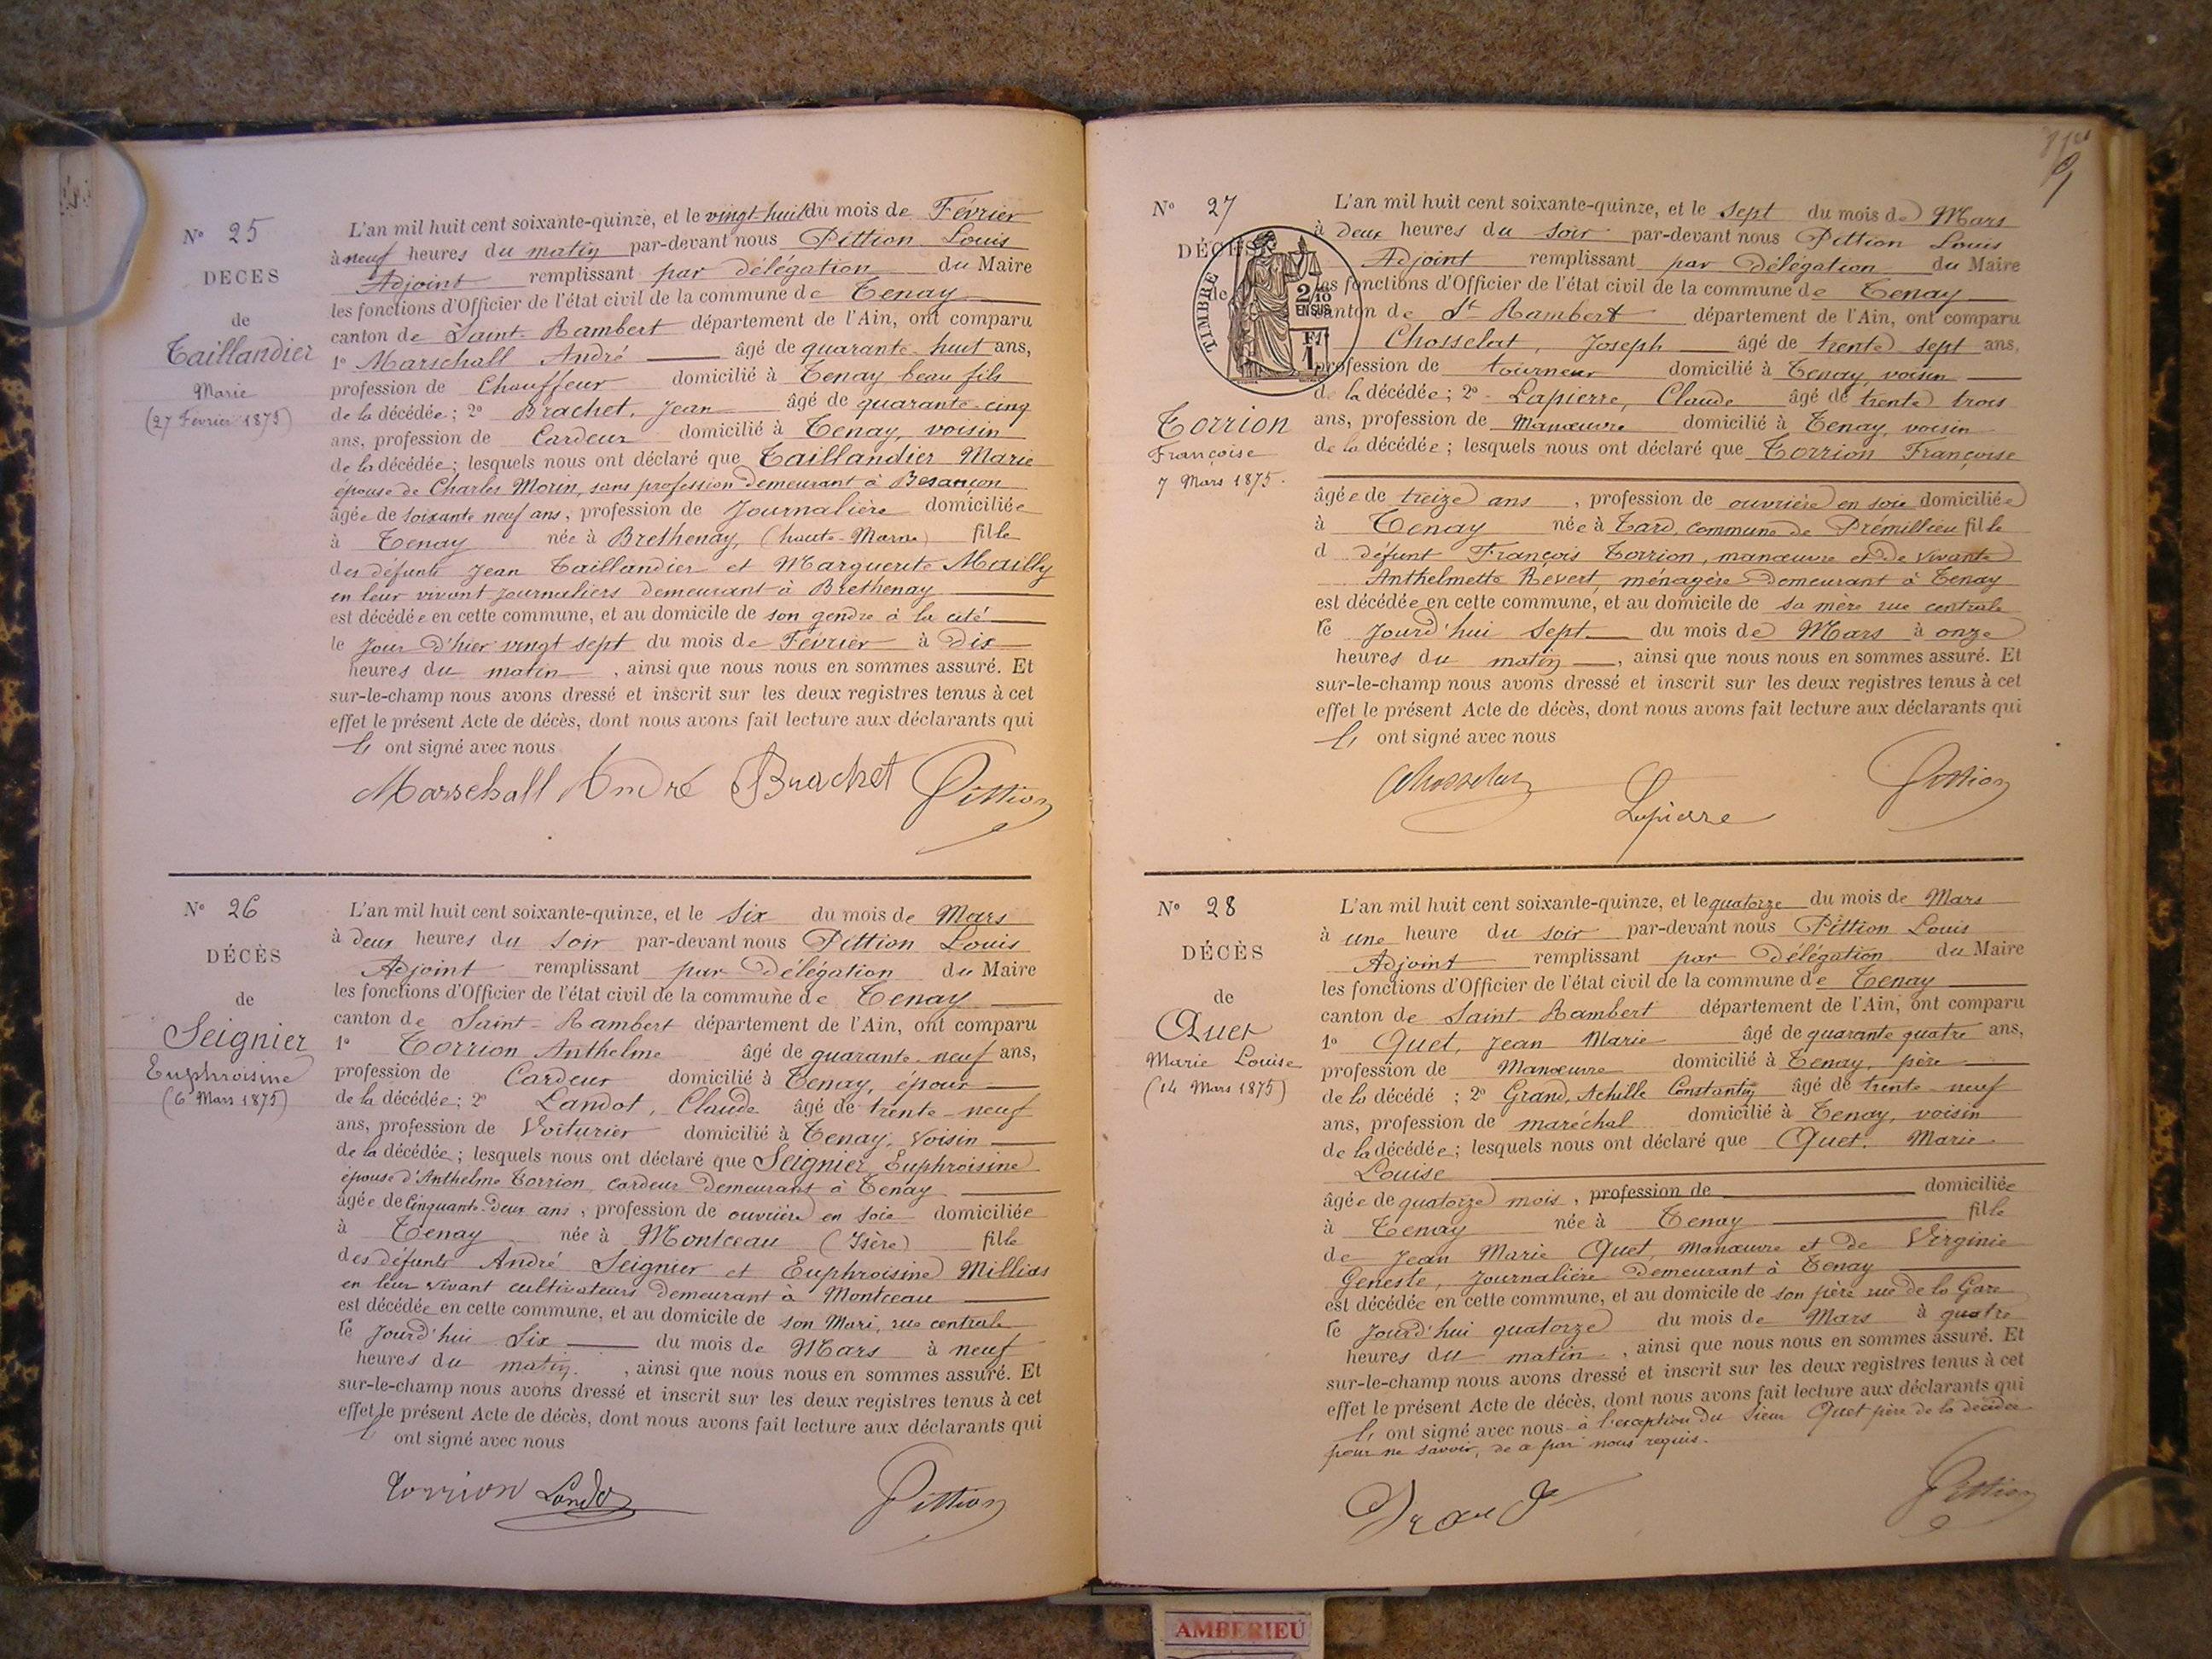 N° 25
DÉCÈS
de
Taillandier
Marie
(27 Février 1875)
L'an mil huit cent soixante-quinze, et le vingt-huit du mois de Février
à neuf heures du matin par-devant nous Pittion Louis
Adjoint remplissant par délégation du Maire
les fonctions d'Officier de l'état civil de la commune de Tenay
canton de Saint-Rambert département de l'Ain, ont comparu
1° Marschall André âgé de quarante-huit ans,
profession de Chauffeur domicilié à Tenay beau fils
de la décédée ; 2° Brachet, Jean âgé de quarante-cinq
ans, profession de Cardeur domicilié à Tenay, voisin
de la décédée ; lesquels nous ont déclaré que Taillandier Marie
épouse de Charles Morin, sans profession demeurant à Besançon
âgée de soixante neuf ans, profession de Journalière domiciliée
à Tenay née à Brethenay, (haute-Marne) fille
des défunts Jean Taillandier et Marguerite Mailly
en leur vivant journaliers demeurant à Brethenay
est décédée en cette commune, et au domicile de son gendre à la cité
le jour d'hier vingt sept du mois de Février à Dix
heures du matin, ainsi que nous nous en sommes assuré. Et
sur-le-champ nous avons dressé et inscrit sur les deux registres tenus à cet
effet le présent Acte de décès, dont nous avons fait lecture aux déclarants qui
ont signé avec nous
Marschall André Brachet Pittion
N° 26
DÉCÈS
de
Seignier
Euphroisine
(6 Mars 1875)
L'an mil huit cent soixante-quinze, et le six du mois de Mars
à deux heures du soir par-devant nous Pittion Louis
Adjoint remplissant par délégation du Maire
les fonctions d'Officier de l'état civil de la commune de Tenay
canton de Saint-Rambert département de l'Ain, ont comparu
1° Torrion Anthelme âgé de quarante-neuf ans,
profession de Cardeur domicilié à Tenay, époux
de la décédée ; 2° Landot, Claude âgé de trente-neuf
ans, profession de Voiturier domicilié à Tenay, Voisin
de la décédée ; lesquels nous ont déclaré que Seignier Euphroisine
épouse d'Anthelme Torrion, cardeur demeurant à Tenay
âgée de Cinquante-Deux ans, profession de ouvrière en soie domiciliée
à Tenay née à Montceau (Isère) fille
des défunts André Seignier et Euphroisine Millias
en leur vivant cultivateurs demeurant à Montceau
est décédée en cette commune, et au domicile de son Mari, rue centrale
le jourd'hui Six du mois de Mars à neuf
heures du matin, ainsi que nous nous en sommes assuré. Et
sur-le-champ nous avons dressé et inscrit sur les deux registres tenus à cet
effet le présent Acte de décès, dont nous avons fait lecture aux déclarants qui
ont signé avec nous
Torrion Landot Pittion
N° 27
DÉCÈS
de
TIMBRE
2/10
EN SUS
Torrion
Françoise
7 Mars 1875.
L'an mil huit cent soixante-quinze, et le sept du mois de Mars
à deux heures du soir par-devant nous Pittion Louis
Adjoint remplissant par délégation du Maire
les fonctions d'Officier de l'état civil de la commune de Tenay
canton de St Rambert département de l'Ain, ont comparu
Chosselat, Joseph âgé de trente sept ans,
profession de tourneur domicilié à Tenay, voisin
de la décédée ; 2° Lapierre, Claude âgé de trente trois
ans, profession de Manœuvre domicilié à Tenay, voisin
de la décédée ; lesquels nous ont déclaré que Torrion Françoise
âgée de treize ans, profession de ouvrière en soie domiciliée
à Tenay née à Tard, commune de Prémillieu fille
d défunt François Torrion, manœuvre et de vivante
Anthelmette Revert, ménagère demeurant à Tenay
est décédée en cette commune, et au domicile de sa mère rue centrale
le jourd'hui Sept du mois de Mars à onze
heures du matin, ainsi que nous nous en sommes assuré. Et
sur-le-champ nous avons dressé et inscrit sur les deux registres tenus à cet
effet le présent Acte de décès, dont nous avons fait lecture aux déclarants qui
ont signé avec nous
Chosselat Lapierre Pittion
N° 28
DÉCÈS
de
Quet
Marie Louise
(14 Mars 1875)
L'an mil huit cent soixante-quinze, et le quatorze du mois de Mars
à une heure du soir par-devant nous Pittion Louis
Adjoint remplissant par délégation du Maire
les fonctions d'Officier de l'état civil de la commune de Tenay
canton de Saint-Rambert département de l'Ain, ont comparu
1° Quet, Jean Marie âgé de quarante quatre ans,
profession de Manœuvre domicilié à Tenay, père
de la décédé ; 2° Grand, Achille Constantin âgé de trente-neuf
ans, profession de maréchal domicilié à Tenay, voisin
de la décédée ; lesquels nous ont déclaré que Quet Marie
Louise
âgée de quatorze mois, profession de domiciliée
à Tenay née à Tenay fille
de Jean Marie Quet, Manœuvre et de Virginie
Geneste, Journalière demeurant à Tenay
est décédée en cette commune, et au domicile de son père rue de la Gare
le jourd'hui quatorze du mois de Mars à quatre
heures du matin, ainsi que nous nous en sommes assuré. Et
sur-le-champ nous avons dressé et inscrit sur les deux registres tenus à cet
effet le présent Acte de décès, dont nous avons fait lecture aux déclarants qui
ont signé avec nous à l'exception du Sieur Quet père de la décédée
pour ne savoir, de ce par nous requis.
Pittion
AMBERIEU